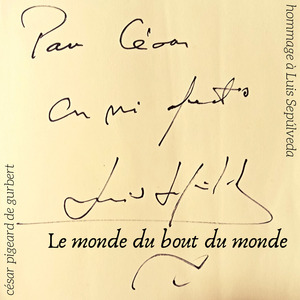 Para César
con mi afecto
Luis Sepúlveda
Le monde du bout du monde
césar pigeard de gurbert
hommage à Luis Sepúlveda